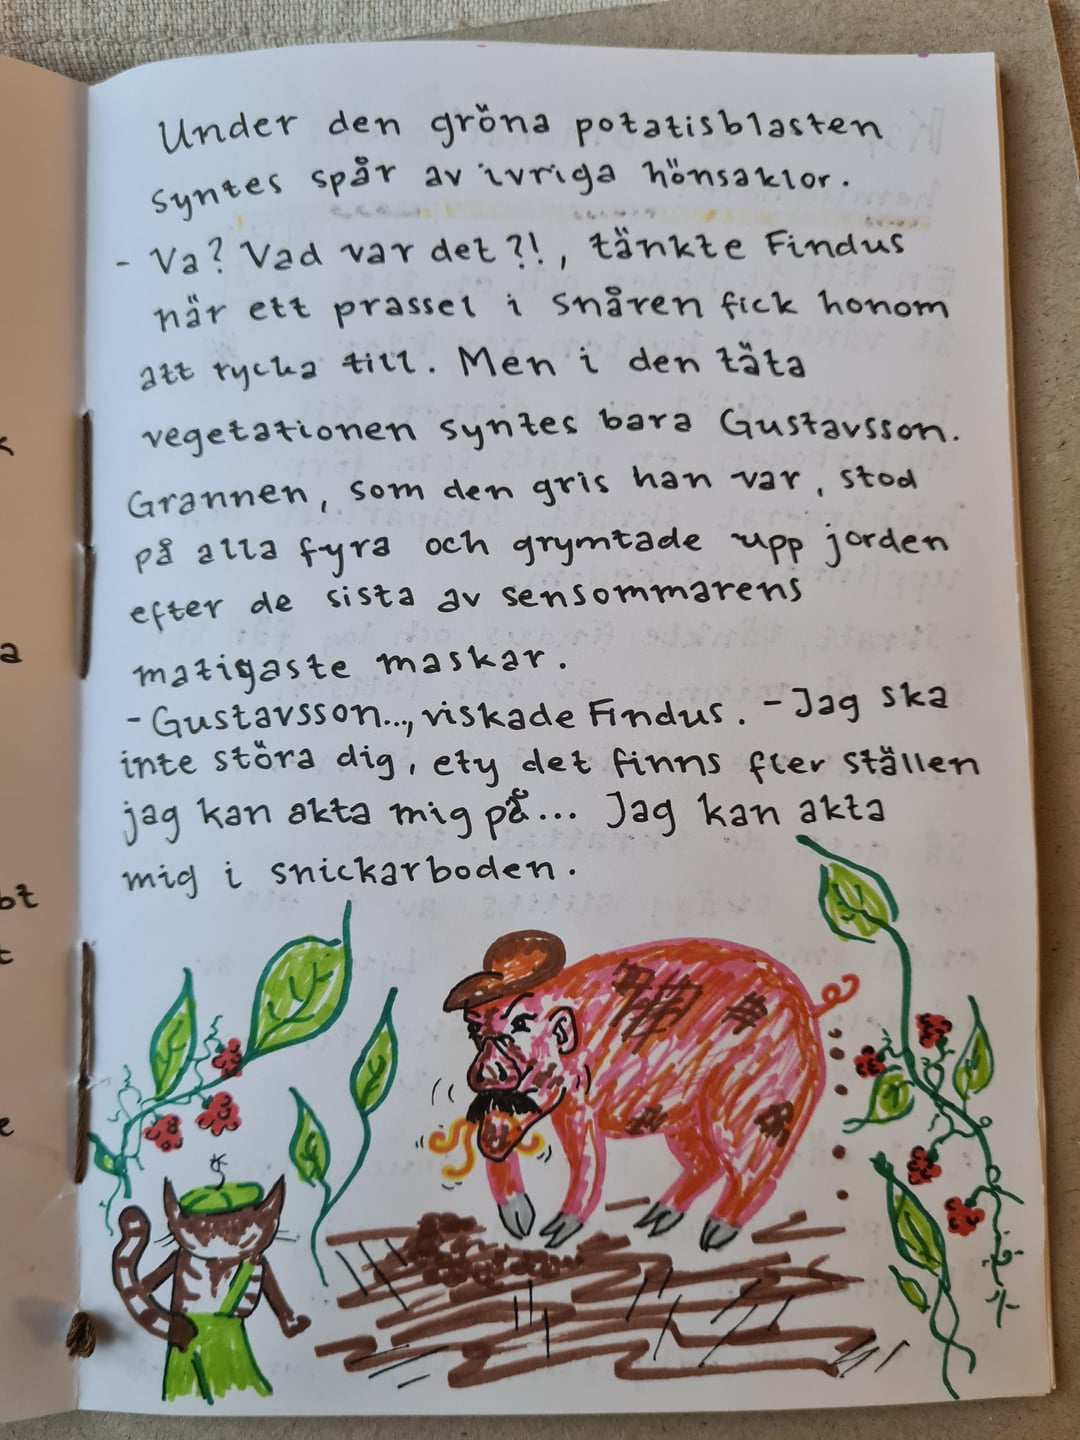 Under den gröna potatisblasten
syntes spår av ivriga hönsaklor.
- Va? Vad var det?!, tänkte Findus
när ett prassel i snåren fick honom
att rycka till. Men i den täta
vegetationen syntes bara Gustavsson.
Grannen, som den gris han var, stod
på alla fyra och grymtade upp jorden
efter de sista av sensommarens
matigaste maskar.
- Gustavsson..., viskade Findus. - Jag ska
inte störa dig, ety det finns fler ställen
jag kan akta mig på... Jag kan akta
mig i snickarboden.